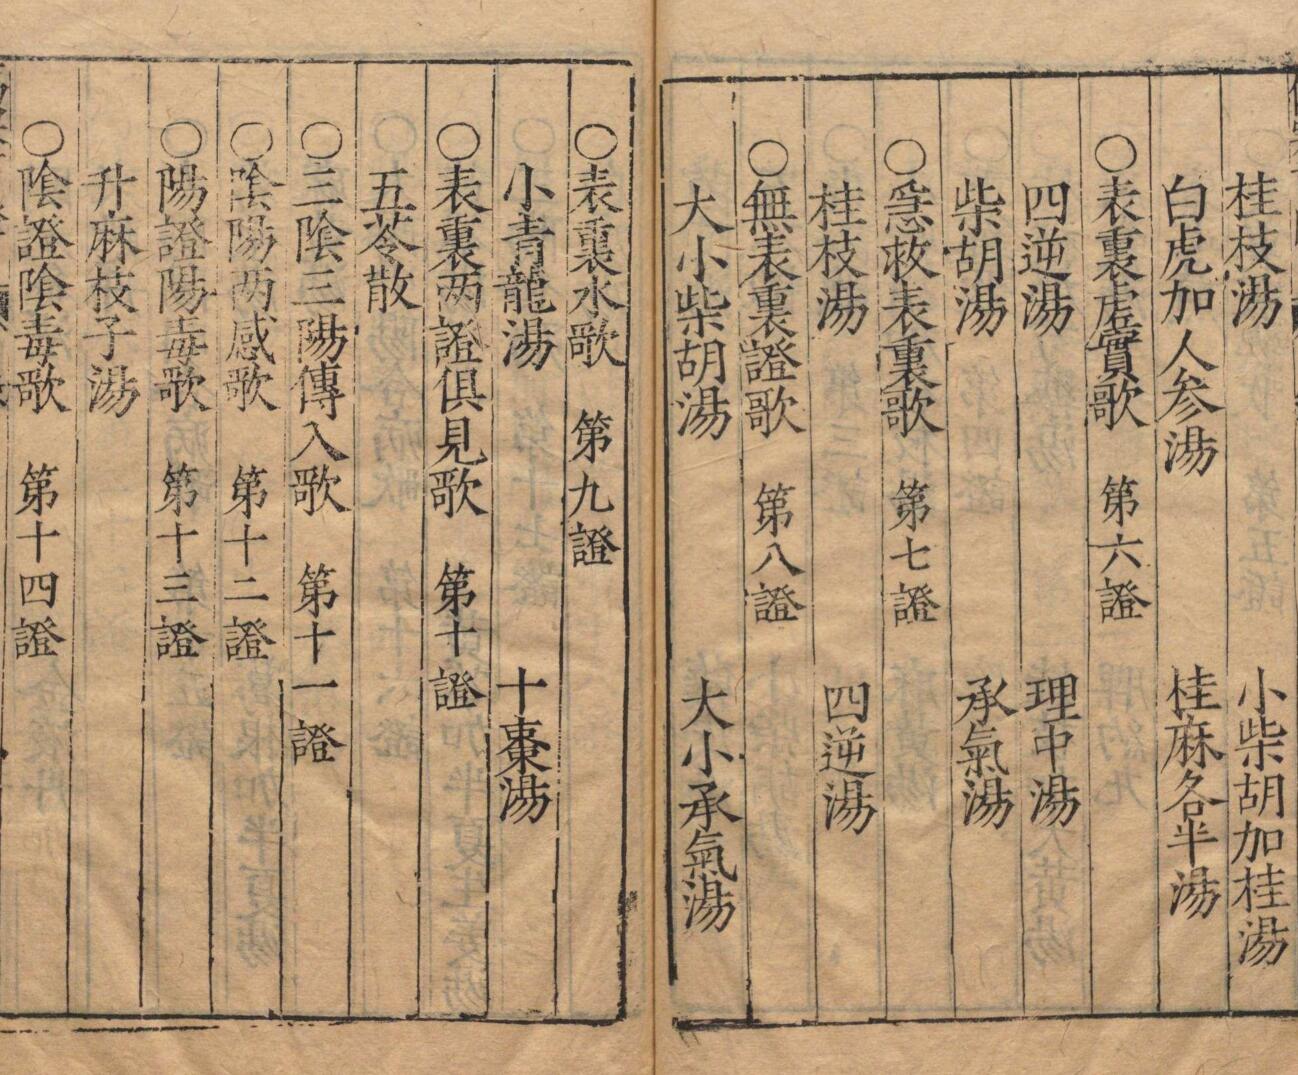 桂枝湯　小柴胡加桂湯
白虎加人参湯　桂麻各半湯
○表裏虛實歌　第六證
四逆湯　理中湯
柴胡湯　承氣湯
○急救表裏歌　第七證
桂枝湯　四逆湯
○無表裏證歌　第八證
大小柴胡湯　大小承氣湯
○表裏水歌　第九證
小青龍湯　十棗湯
○表裏两證俱見歌　第十證
五苓散
○三陰三陽傳入歌　第十一證
○陰陽两感歌　第十二證
○陽證陽毒歌　第十三證
升麻枝子湯
○陰證陰毒歌　第十四證